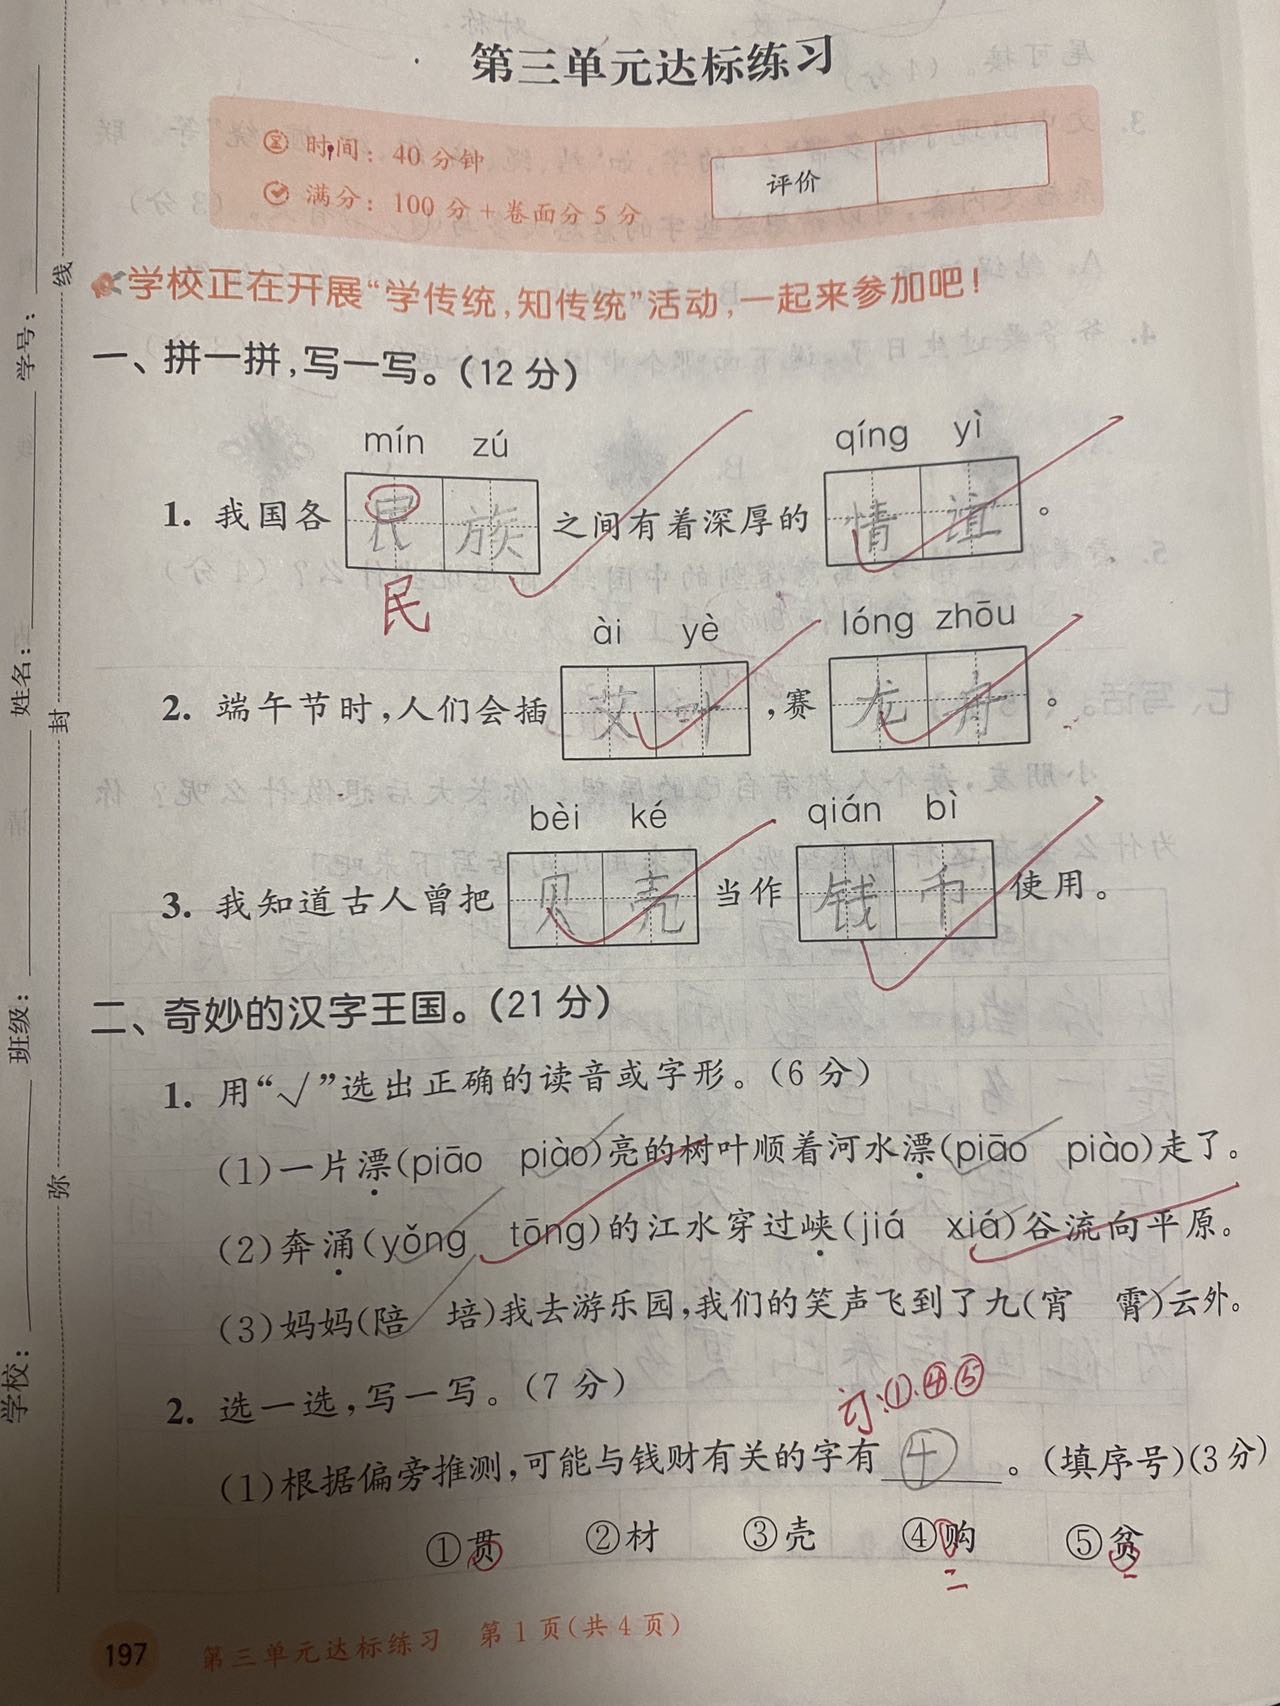 第三单元达标练习
时间：40分钟
满分：100分+卷面分5分
评价
学校正在开展“学传统，知传统”活动，一起来参加吧！
一、拼一拼，写一写。（12分）
mín zú qíng yì
1. 我国各民族之间有着深厚的情谊。
民
ài yè lóng zhōu
2. 端午节时，人们会插艾叶，赛龙舟。
bèi ké qián bì
3. 我知道古人曾把贝壳当作钱币使用。
二、奇妙的汉字王国。（21分）
1. 用“√”选出正确的读音或字形。（6分）
(1)一片漂(piāo piào)亮的树叶顺着河水漂(piāo piào)走了。
(2)奔涌(yǒng tōng)的江水穿过峡(jiá xiá)谷流向平原。
(3)妈妈(陪 培)我去游乐园，我们的笑声飞到了九(宵 霄)云外。
2. 选一选，写一写。（7分）
订:①④⑤
(1)根据偏旁推测，可能与钱财有关的字有④。(填序号)(3分)
①贯 ②材 ③壳 ④购 ⑤贫
197 第三单元达标练习 第1页(共4页)
学校： 班级： 姓名： 学号：
弥 封 线